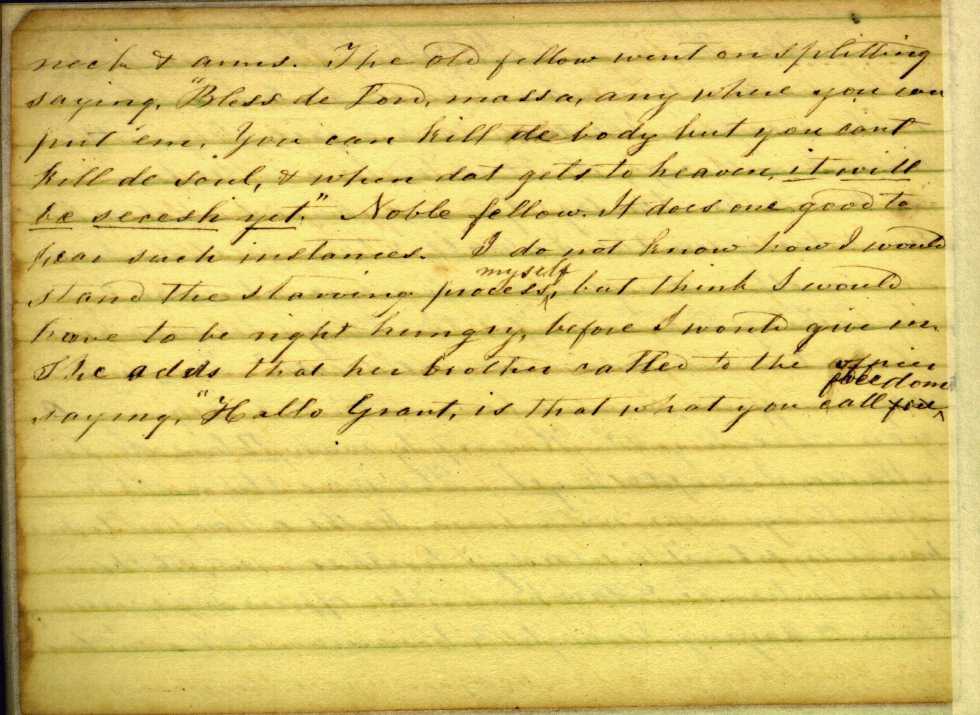 neck & arms. The old fellow went on splitting
saying, "Bless de Lord, massa, any where you can
put 'em, You can kill de body but you cant
kill de soul, & when dat gets to heaven, it will
be secesh yet." Noble fellow. It does one good to
hear such instances. I do not know how I would
stand the starving process myself, but think I would
have to be right hungry, before I would give in.
She adds that her brother called to the officer
saying, "Hallo Grant, is that what you call freedom